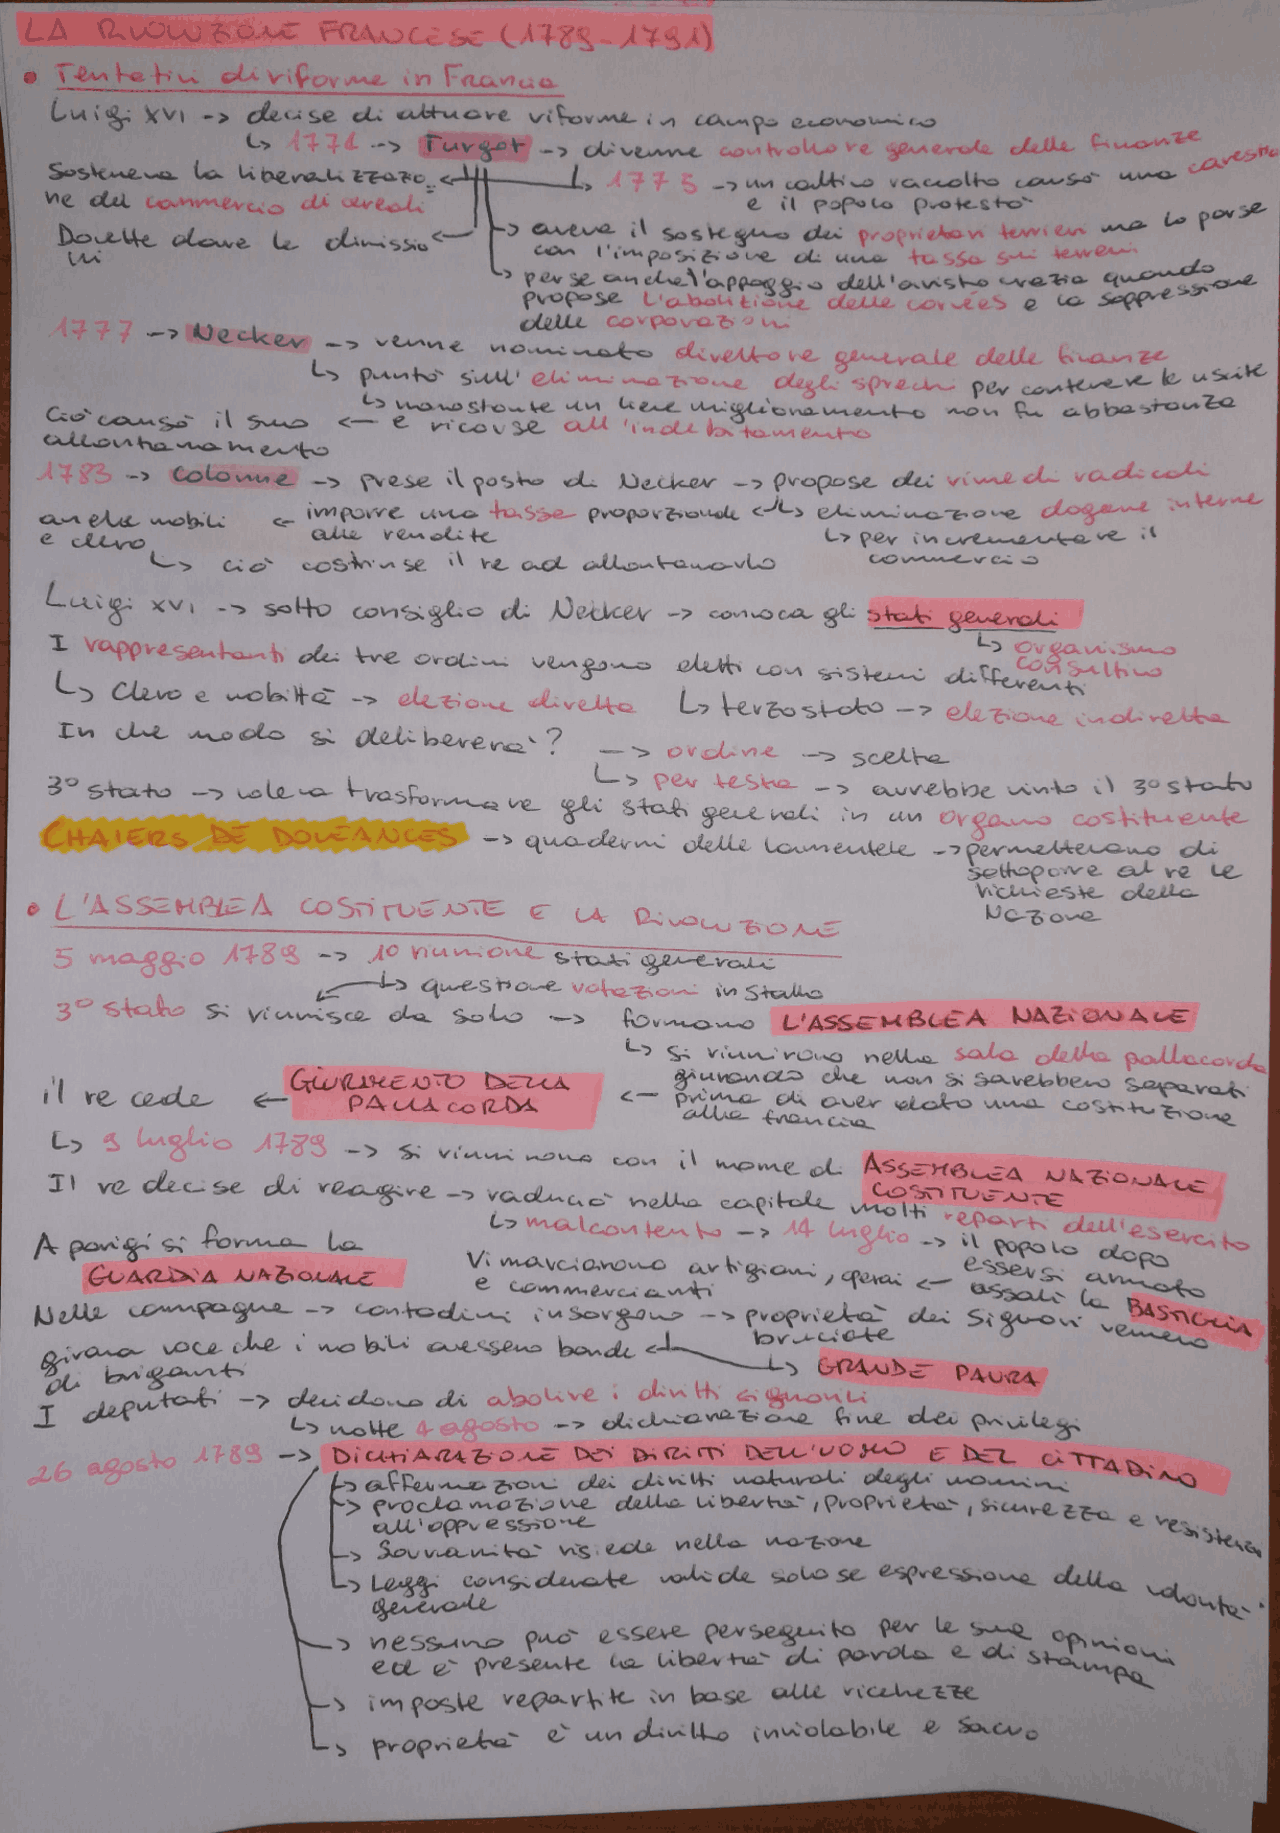 LA RIVOLUZIONE FRANCESE (1789-1791)
• Tentativi di riforme in Francia
Luigi XVI -> decise di attuare riforme in campo economico
↳ 1771 -> Turgot -> divenne controllore generale delle finanze
Sosteneva la liberalizzazio= <- ↳ 1775 -> un cattivo raccolto causò una carestia
ne del commercio di cereali e il popolo protestò
Dovette dare le dimissio <- ↳ aveva il sostegno dei proprietari terrieri ma lo perse
ni con l'imposizione di una tassa sui terreni
↳ perse anche l'appoggio dell'aristocrazia quando
propose l'abolizione delle corvées e la soppressione
delle corporazioni
1777 -> Necker -> venne nominato direttore generale delle finanze
↳ puntò sull'eliminazione degli sprechi per contenere le uscite
↳ nonostante un lieve miglioramento non fu abbastanza
Ciò causò il suo <- e ricorse all'indebitamento
allontanamento
1783 -> Colonne -> prese il posto di Necker -> propose dei rimedi radicali
anche nobili <- imporre una tassa proporzionale <- ↳ eliminazione dogane interne
e clero alle rendite ↳ per incrementare il
↳ ciò costrinse il re ad allontanarlo commercio
Luigi XVI -> sotto consiglio di Necker -> convoca gli stati generali
↳ organismo
consultivo
I rappresentanti dei tre ordini vengono eletti con sistemi differenti
↳ Clero e nobiltà -> elezione diretta ↳ terzo stato -> elezione indiretta
In che modo si delibererà? -> ordine -> scelta
↳ per testa -> avrebbe vinto il 3° stato
3° stato -> voleva trasformare gli stati generali in un organo costituente
CHAIERS DE DOLEANCES -> quaderni delle lamentele -> permettevano di
sottoporre al re le
richieste della
Nazione
• L'ASSEMBLEA COSTITUENTE E LA RIVOLUZIONE
5 maggio 1789 -> 1° riunione stati generali
↳ questione votazioni in stallo
3° stato si riunisce da solo -> formano L'ASSEMBLEA NAZIONALE
↳ si riunirono nella sala della pallacorda
il re cede <- GIURAMENTO DELLA PALLACORDA <- giurando che non si sarebbero separati
prima di aver dato una costituzione
alla francia
↳ 9 luglio 1789 -> si riunirono con il nome di ASSEMBLEA NAZIONALE
COSTITUENTE
Il re decise di reagire -> radunò nella capitale molti reparti dell'esercito
↳ malcontento -> 14 luglio -> il popolo dopo
essersi armato
assalì la BASTIGLIA
A parigi si forma la
GUARDIA NAZIONALE
Vi marciarono artigiani, operai <-
e commercianti
Nelle campagne -> contadini insorgono -> proprietà dei Signori vennero
bruciate
girava voce che i nobili avessero bande <- ↳ GRANDE PAURA
di briganti
I deputati -> decidono di abolire i diritti signorili
↳ notte 4 agosto -> dichiarazione fine dei privilegi
26 agosto 1789 -> DICHIARAZIONE DEI DIRITTI DELL'UOMO E DEL CITTADINO
↳ affermazioni dei diritti naturali degli uomini
↳ proclamazione della libertà, proprietà, sicurezza e resistenza
all'oppressione
↳ Sovranità risiede nella nazione
↳ Leggi considerate valide solo se espressione della volontà
generale
-> nessuno può essere perseguito per le sue opinioni
ed è presente la libertà di parola e di stampa
-> imposte repartite in base alle ricchezze
↳ proprietà è un diritto inviolabile e sacro